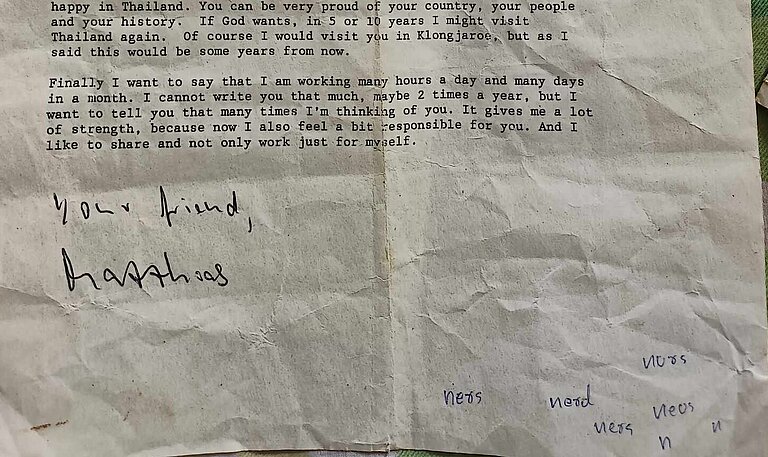 happy in Thailand. You can be very proud of your country, your people
and your history.  If God wants, in 5 or 10 years I might visit
Thailand again.  Of course I would visit you in Klongjaroe, but as I
said this would be some years from now.
Finally I want to say that I am working many hours a day and many days
in a month. I cannot write you that much, maybe 2 times a year, but I
want to tell you that many times I'm thinking of you. It gives me a lot
of strength, because now I also feel a bit responsible for you. And I
like to share and not only work just for myself.
Your friend,
Matthias
nors
ners nerd
ners neos
n n